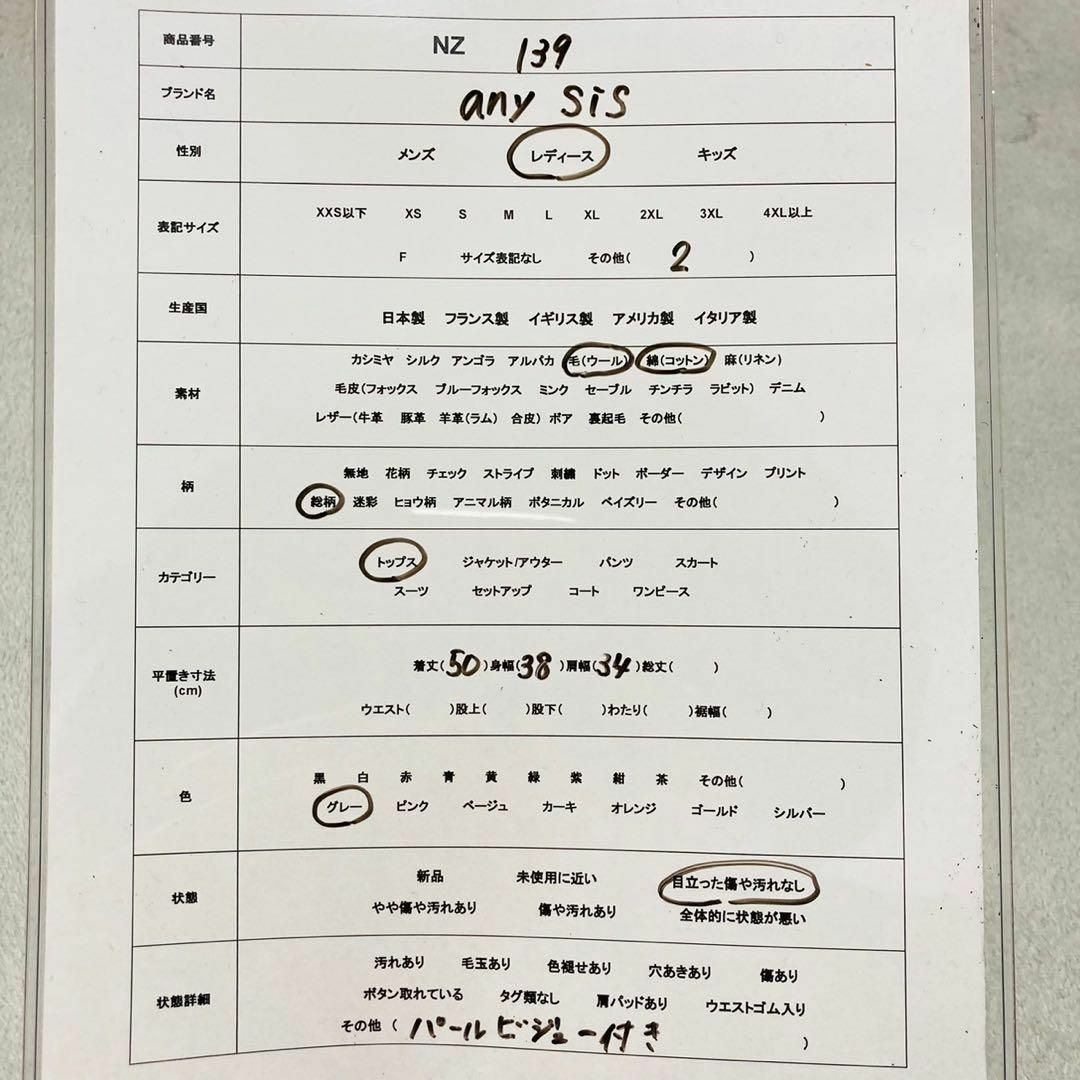 商品番号 NZ 139
ブランド名 any SiS
性別 メンズ レディース キッズ
表記サイズ XXS以下 XS S M L XL 2XL 3XL 4XL以上
F サイズ表記なし その他( 2 )
生産国 日本製 フランス製 イギリス製 アメリカ製 イタリア製
素材 カシミヤ シルク アンゴラ アルパカ 毛(ウール) 綿(コットン) 麻(リネン)
毛皮(フォックス ブルーフォックス ミンク セーブル チンチラ ラビット) デニム
レザー(牛革 豚革 羊革(ラム) 合皮) ボア 裏起毛 その他( )
柄 無地 花柄 チェック ストライプ 刺繍 ドット ボーダー デザイン プリント
総柄 迷彩 ヒョウ柄 アニマル柄 ボタニカル ペイズリー その他( )
カテゴリー トップス ジャケット/アウター パンツ スカート
スーツ セットアップ コート ワンピース
平置き寸法 (cm) 着丈(50)身幅(38)肩幅(34)総丈( )
ウエスト( )股上( )股下( )わたり( )裾幅( )
色 黒 白 赤 青 黄 緑 紫 紺 茶 その他( )
グレー ピンク ベージュ カーキ オレンジ ゴールド シルバー
状態 新品 未使用に近い 目立った傷や汚れなし
やや傷や汚れあり 傷や汚れあり 全体的に状態が悪い
状態詳細 汚れあり 毛玉あり 色褪せあり 穴あきあり 傷あり
ボタン取れている タグ類なし 肩パッドあり ウエストゴム入り
その他 ( パールビジュー付き )